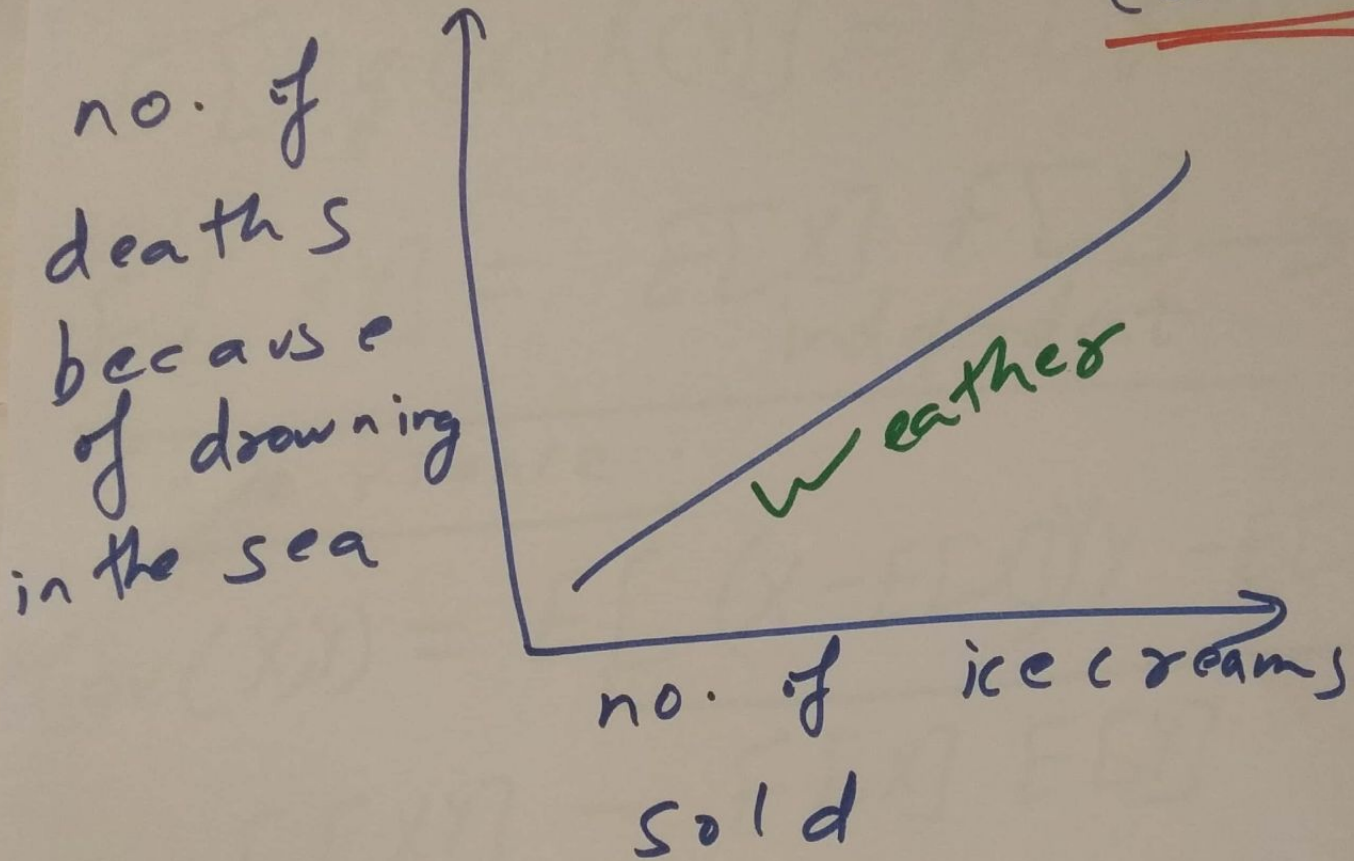 no. of
deaths
because
of drowning
in the sea
weather
no. of icecreams
sold